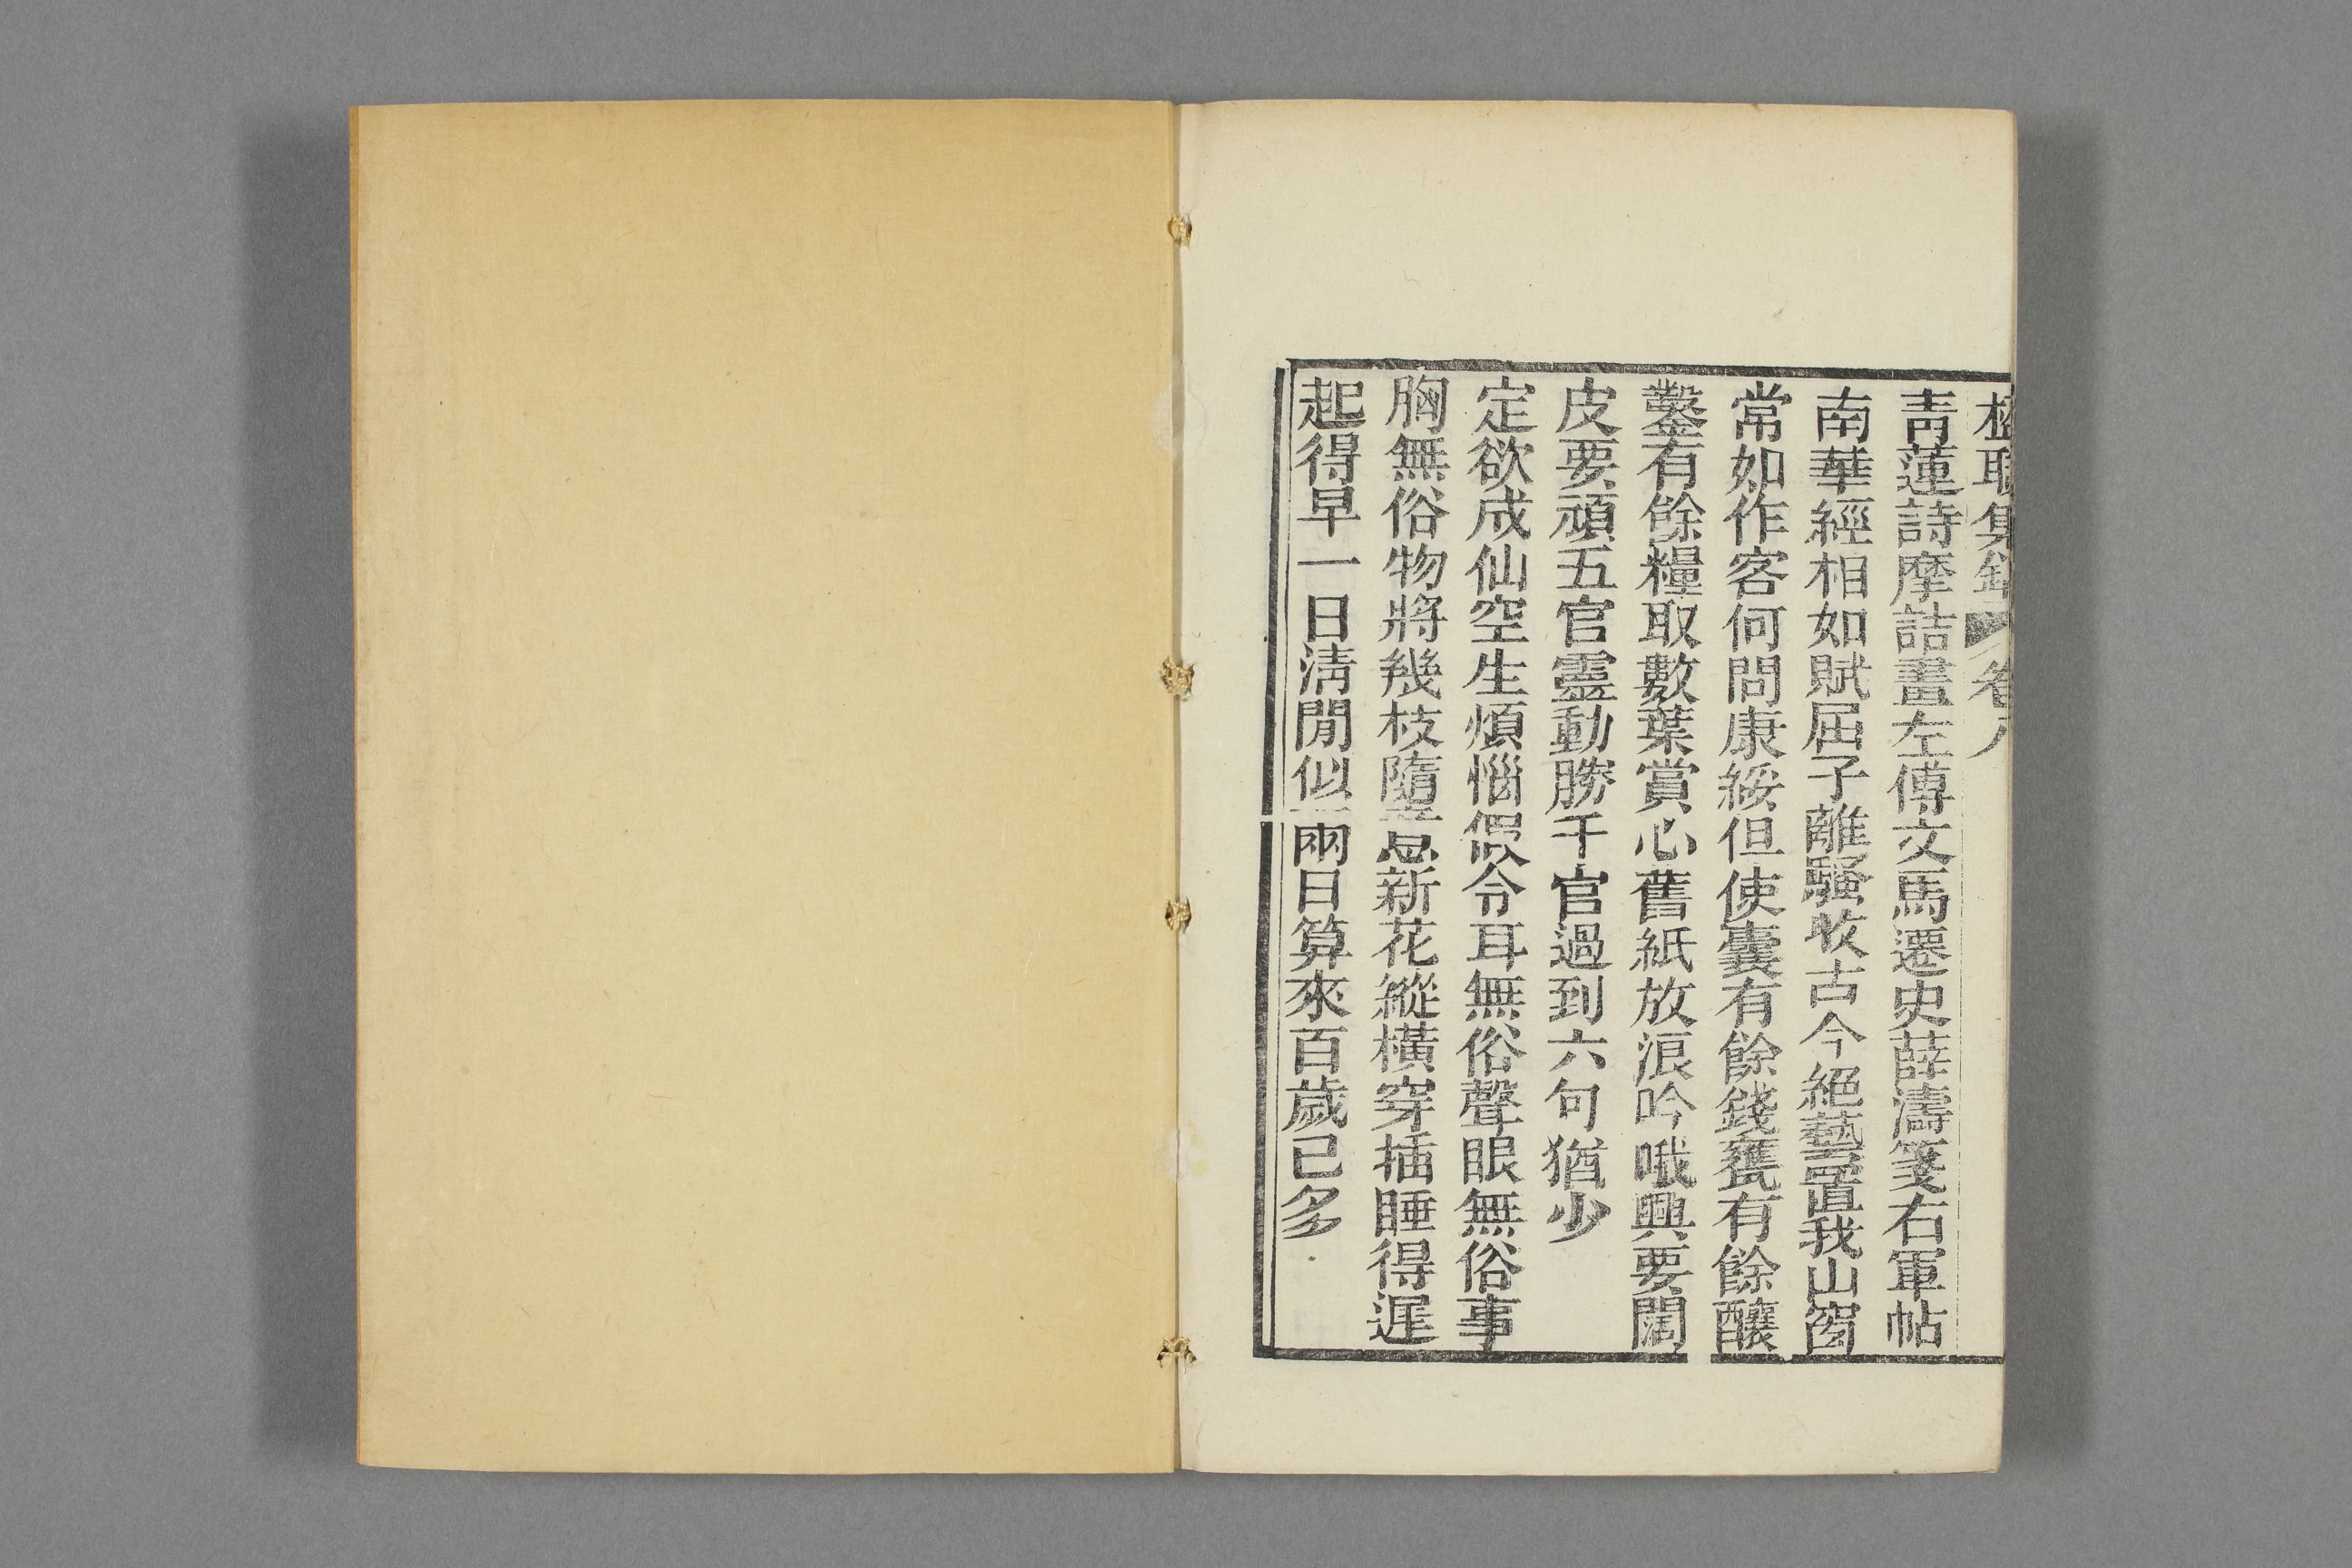 楹聯集錦 卷八
靑蓮詩摩詰畫左傳文馬遷史薛濤箋右軍帖
南華經相如賦屈子離騷收古今絕藝置我山窗
常如作客何問康綏但使囊有餘錢甕有餘釀
鑿有餘糧取數葉賞心舊紙放浪吟哦興要闊
皮要頑五官靈動勝千官過到六句猶少
定欲成仙空生煩惱假令耳無俗聲眼無俗事
胸無俗物將幾枝隨意新花縱橫穿插睡得遲
起得早一日淸閒似兩日算來百歲已多